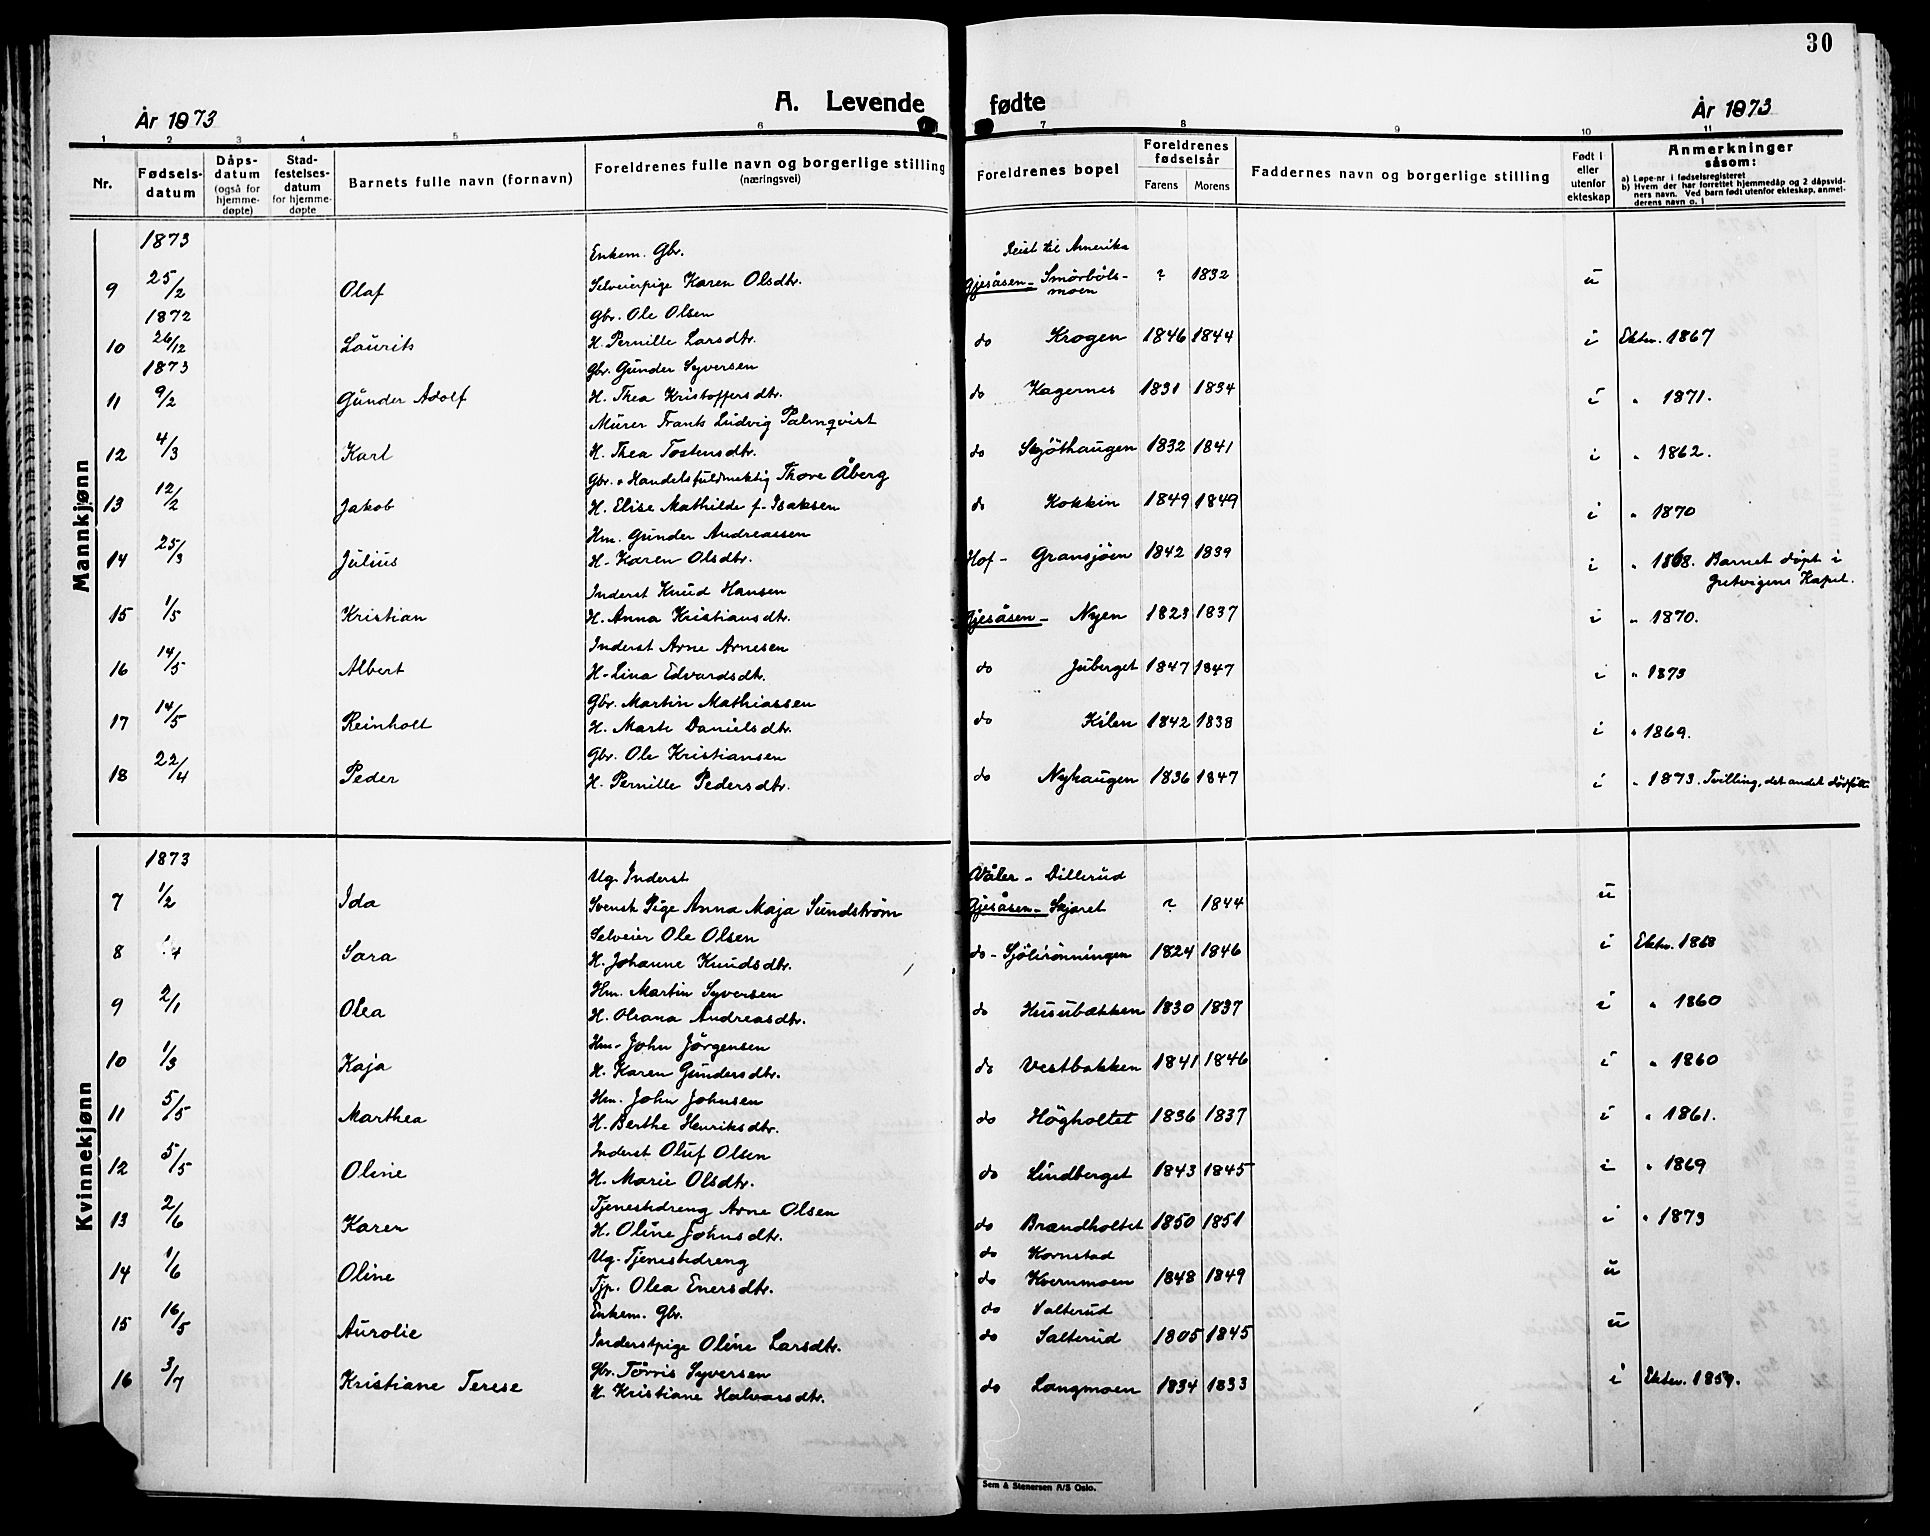 30
A. Levende fødte
År 1873
År 1873
1 2 3 4 5 6 7 8 9 10 11
Nr.
Fødsels-
datum
Dåps-
datum
(også for
hjemme-
døpte)
Stad-
festelses-
datum
for hjemme-
døpte
Barnets fulle navn (fornavn)
Foreldrenes fulle navn og borgerlige stilling
(næringsvei)
Foreldrenes bopel
Foreldrenes
fødselsår
Farens Morens
Faddernes navn og borgerlige stilling
Født i
eller
utenfor
ekteskap
Anmerkninger
såsom:
a) Løpe-nr i fødselsregisteret
b) Hvem der har forrettet hjemmedåp og 2 dåpsvid-
ners navn. Ved barn født utenfor ekteskap, anmel-
derens navn o. l
Mannkjønn
1873 Enkem. Gbr. Reist til Amerika
9 25/2 Olaf Selveierpige Karen Olsdtr. Gjesåsen - Smörböls-
moen ? 1832 u
1872 Gbr. Ole Olsen
10 26/12 Laurits H. Pernille Larsdtr. do Krogen 1846 1844 i Ektev. 1867
1873 Gbr. Gunder Syversen
11 9/2 Gunder Adolf H. Thea Kristoffersdtr. do Kagernes 1831 1834 i " 1871.
Murer Frants Ludvig Palmqvist
12 4/3 Karl H. Thea Tostensdtr. do Skjöthaugen 1832 1841 i " 1862.
Gbr. o Handelsfuldmektig Thore Åberg
13 12/2 Jakob H. Elise Mathilde f. Isaksen do Kokkin 1849 1849 i " 1870
Hm. Gunder Andreassen
14 25/3 Julius H. Karen Olsdtr. Hof - Gransjöen 1842 1839 i " 1868. Barnet döpt i
Gretvigens Kapel.
Inderst Knud Hansen
15 1/5 Kristian H. Anna Kristiansdtr. Gjesåsen - Nyen 1823 1837 i " 1870.
Inderst Arne Arnesen
16 14/5 Albert H. Lina Edvardsdtr. do Juberget 1847 1847 i " 1873
Gbr. Martin Mathiassen
17 14/5 Reinholt H. Marte Danielsdtr. do Kilen 1842 1838 i " 1869.
Gbr. Ole Kristiansen
18 22/4 Peder H. Pernille Pedersdtr. do Nyhaugen 1836 1847 i " 1873. Tvilling, det andet dödfött.
Kvinnekjønn
1873 Ug. Inderst Våler - Dillerud
7 1/2 Ida Svensk Pige Anna Maja Sundström Gjesåsen - Skjaret ? 1844 u
Selveier Ole Olsen
8 Sara H. Johanne Knudsdtr. do - Sjölirönningen 1824 1846 i Ektev. 1868
Hm. Martin Syversen
9 2/1 Olea H. Oleana Andreasdtr. do Husubækken 1830 1837 i " 1860
Hm. John Jörgensen
10 1/3 Kaja H. Karen Gundersdtr. do Vestbakken 1841 1846 i " 1860
Hm. John Johnsen
11 5/5 Marthea H. Berthe Henriksdtr. do Högholtet 1836 1837 i " 1861.
Inderst Oluf Olsen
12 5/5 Oline H. Marie Olsdtr. do Lindberget 1843 1845 i " 1869
Tjenestedreng Arne Olsen
13 2/6 Karen H. Oline Johnsdtr. do Brandholtet 1850 1851 i " 1873
Ug. Tjenestedreng do Kornstad
14 1/6 Oline Tjp. Olea Enersdtr. do Kvernmoen 1848 1849 u
Enkem. Gbr. do Valterud
15 16/5 Aurolie Inderstpige Oline Larsdtr. do Salterud 1805 1845 u
Gbr. Törris Syversen
16 3/7 Kristiane Terese H. Kristiane Halvorsdtr. do Langmoen 1834 1833 i Ektev. 1859.
Sem & Stenersen A/S Oslo.